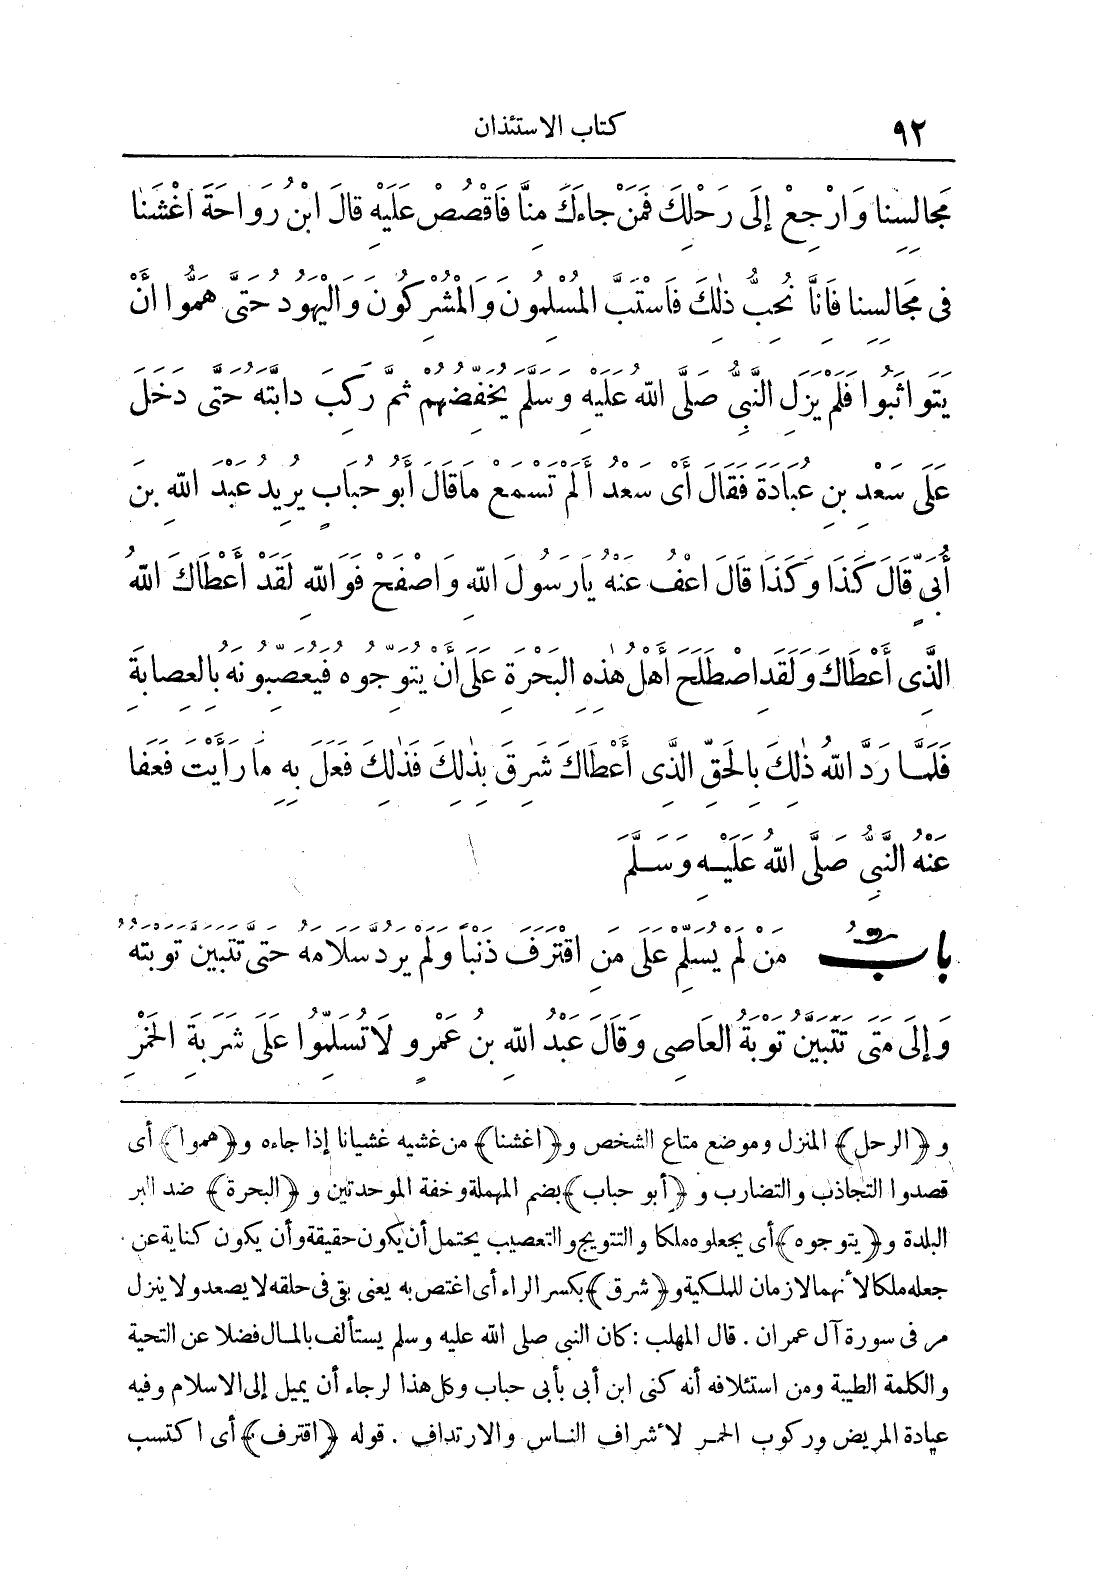 ٩٢
كتاب الاستئذان
مَجَالِسِنَا وَارْجِعْ إِلَى رَحْلِكَ فَمَنْ جَاءَكَ مِنَّا فَاقْصُصْ عَلَيْهِ قَالَ ابْنُ رَوَاحَةَ اغْشَنَا
فِى مَجَالِسِنَا فَانَّا نُحِبُّ ذٰلِكَ فَاسْتَبَّ الْمُسْلِمُونَ وَالْمُشْرِكُونَ وَالْيَهُودُ حَتَّى هَمُّوا أَنْ
يَتَوَاثَبُوا فَلَمْ يَزَلِ النَّبِىُّ صَلَّى اللهُ عَلَيْهِ وَسَلَّمَ يُخَفِّضُهُمْ ثُمَّ رَكِبَ دَابَّتَهُ حَتَّى دَخَلَ
عَلَى سَعْدِ بْنِ عُبَادَةَ فَقَالَ أَىْ سَعْدُ أَلَمْ تَسْمَعْ مَا قَالَ أَبُو حُبَابٍ يُرِيدُ عَبْدَ اللهِ بْنَ
أُبَىٍّ قَالَ كَذَا وَكَذَا قَالَ اعْفُ عَنْهُ يَا رَسُولَ اللهِ وَاصْفَحْ فَوَاللهِ لَقَدْ أَعْطَاكَ اللهُ
الَّذِى أَعْطَاكَ وَلَقَدِ اصْطَلَحَ أَهْلُ هٰذِهِ الْبَحْرَةِ عَلَى أَنْ يُتَوِّجُوهُ فَيُعَصِّبُونَهُ بِالْعِصَابَةِ
فَلَمَّا رَدَّ اللهُ ذٰلِكَ بِالْحَقِّ الَّذِى أَعْطَاكَ شَرِقَ بِذٰلِكَ فَذٰلِكَ فَعَلَ بِهِ مَا رَأَيْتَ فَعَفَا
عَنْهُ النَّبِىُّ صَلَّى اللهُ عَلَيْهِ وَسَلَّمَ
بَابُ مَنْ لَمْ يُسَلِّمْ عَلَى مَنِ اقْتَرَفَ ذَنْبًا وَلَمْ يَرُدَّ سَلَامَهُ حَتَّى تَتَبَيَّنَ تَوْبَتُهُ
وَإِلَى مَتَى تَتَبَيَّنُ تَوْبَةُ الْعَاصِى وَقَالَ عَبْدُ اللهِ بْنُ عَمْرٍو لَا تُسَلِّمُوا عَلَى شَرَبَةِ الْخَمْرِ
و ﴿الرحل﴾ المنزل وموضع متاع الشخص و ﴿اغشنا﴾ من غشيه غشيانا إذا جاءه و ﴿هموا﴾ أى
قصدوا التجاذب والتضارب و ﴿أبو حباب﴾ بضم المهملة وخفة الموحدتين و ﴿البحرة﴾ ضد البر
البلدة و ﴿يتوجوه﴾ أى يجعلوه ملكا والتتويج والتعصيب يحتمل أن يكون حقيقة وأن يكون كناية عن
جعله ملكا لأنهما لازمان للملكية و ﴿شرق﴾ بكسر الراء أى اغتص به يعنى بقى فى حلقه لا يصعد ولا ينزل
مر فى سورة آل عمران . قال المهلب : كان النبى صلى الله عليه وسلم يستألف بالمال فضلا عن التحية
والكلمة الطيبة ومن استئلافه أنه كنى ابن أبى بأبى حباب وكل هذا لرجاء أن يميل إلى الاسلام وفيه
عيادة المريض وركوب الحمر لأشراف الناس والارتداف . قوله ﴿اقترف﴾ أى اكتسب